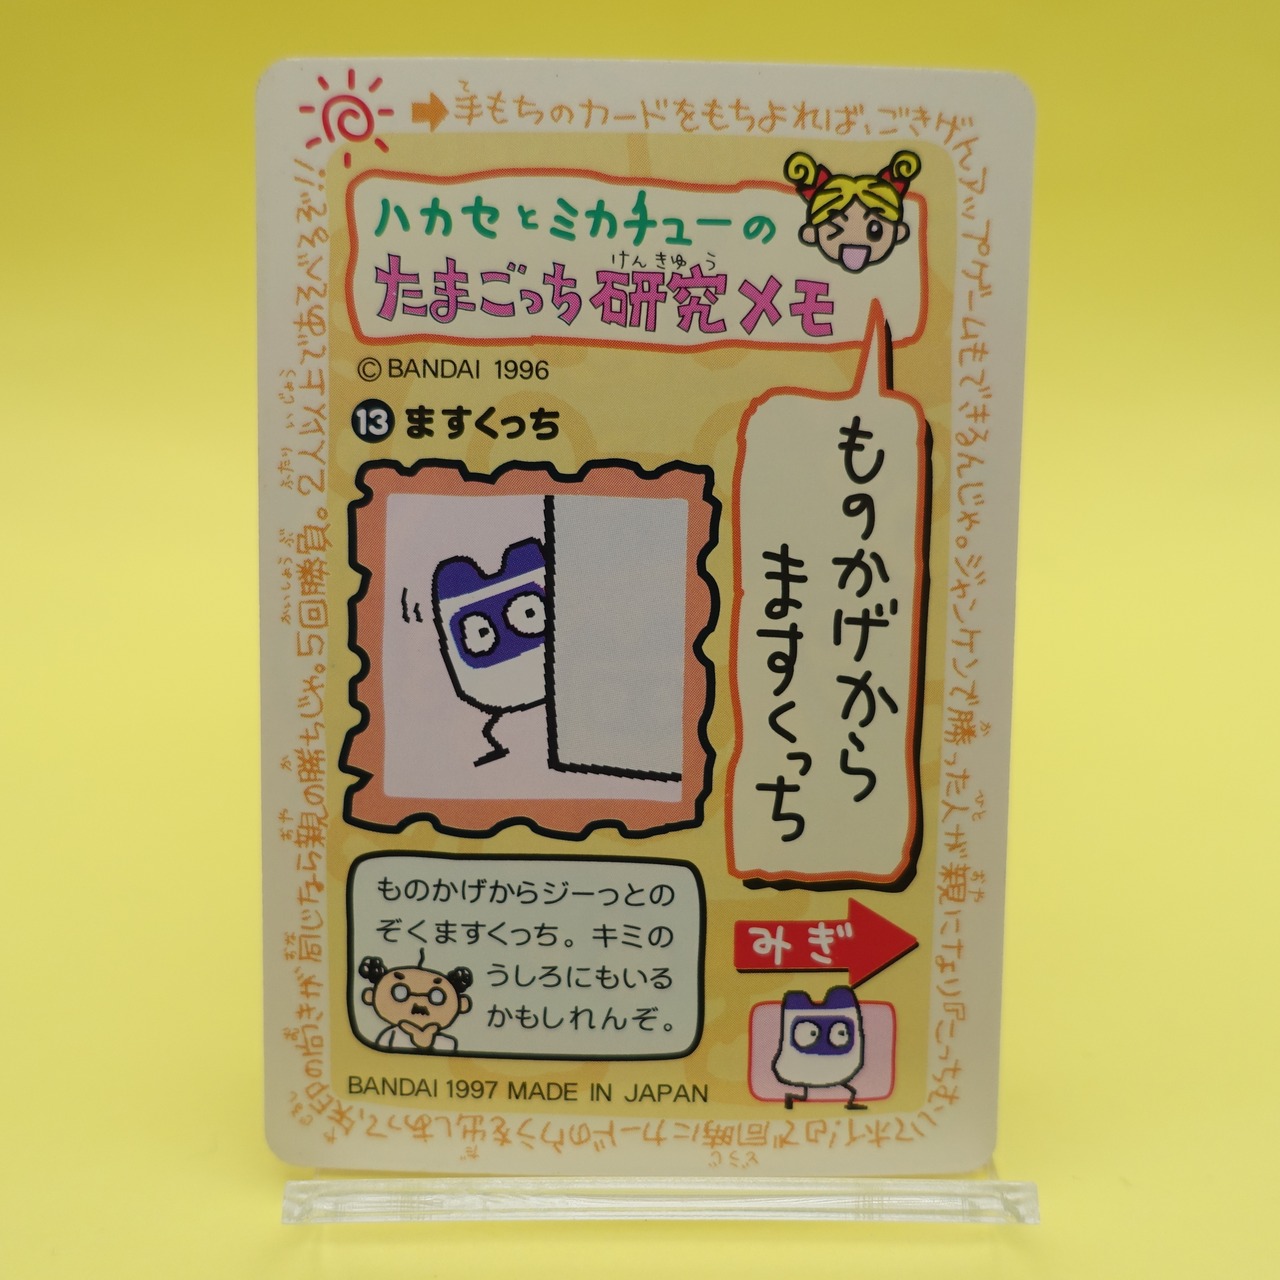 手もちのカードをもちよれば、ごきげんアップゲームもできるんじゃ。ジャンケンで勝った人が親になり『こっちむいてホイ!』で同時にカードのウラを出しあって、矢印の向きが同じなら親の勝ちじゃ。5回勝負。2人以上であそべるぞ!!
ハカセとミカチューの
けんきゅう
たまごっち研究メモ
©BANDAI 1996
13 ますくっち
ものかげから
ますくっち
ものかげからジーっとの
ぞくますくっち。キミの
うしろにもいる
かもしれんぞ。
みぎ
BANDAI 1997 MADE IN JAPAN